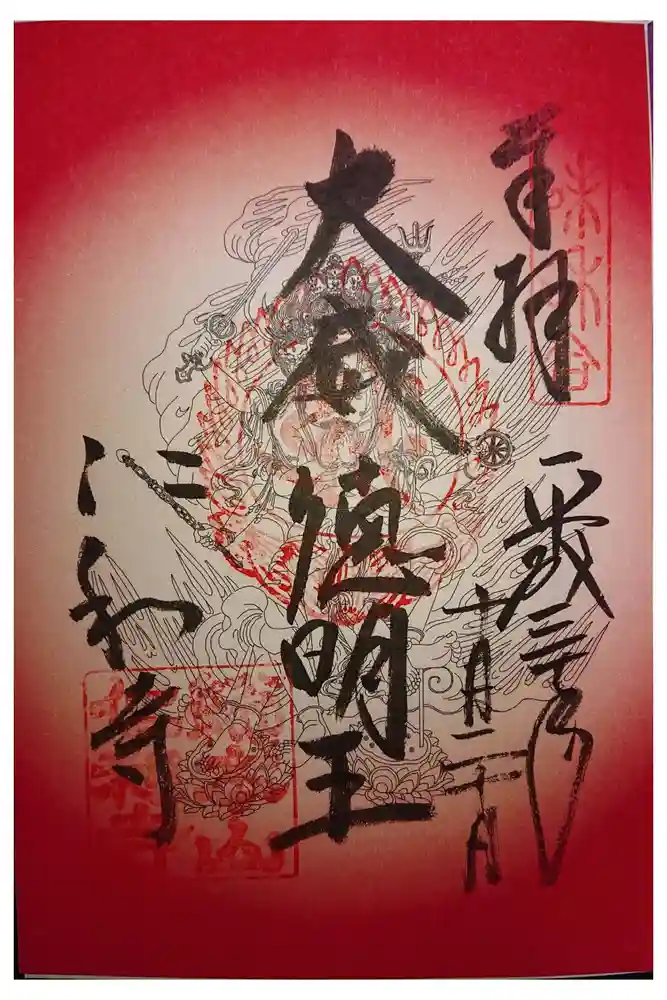 奉拝
平成三十年
十月二十日
大威徳明王
仁和寺